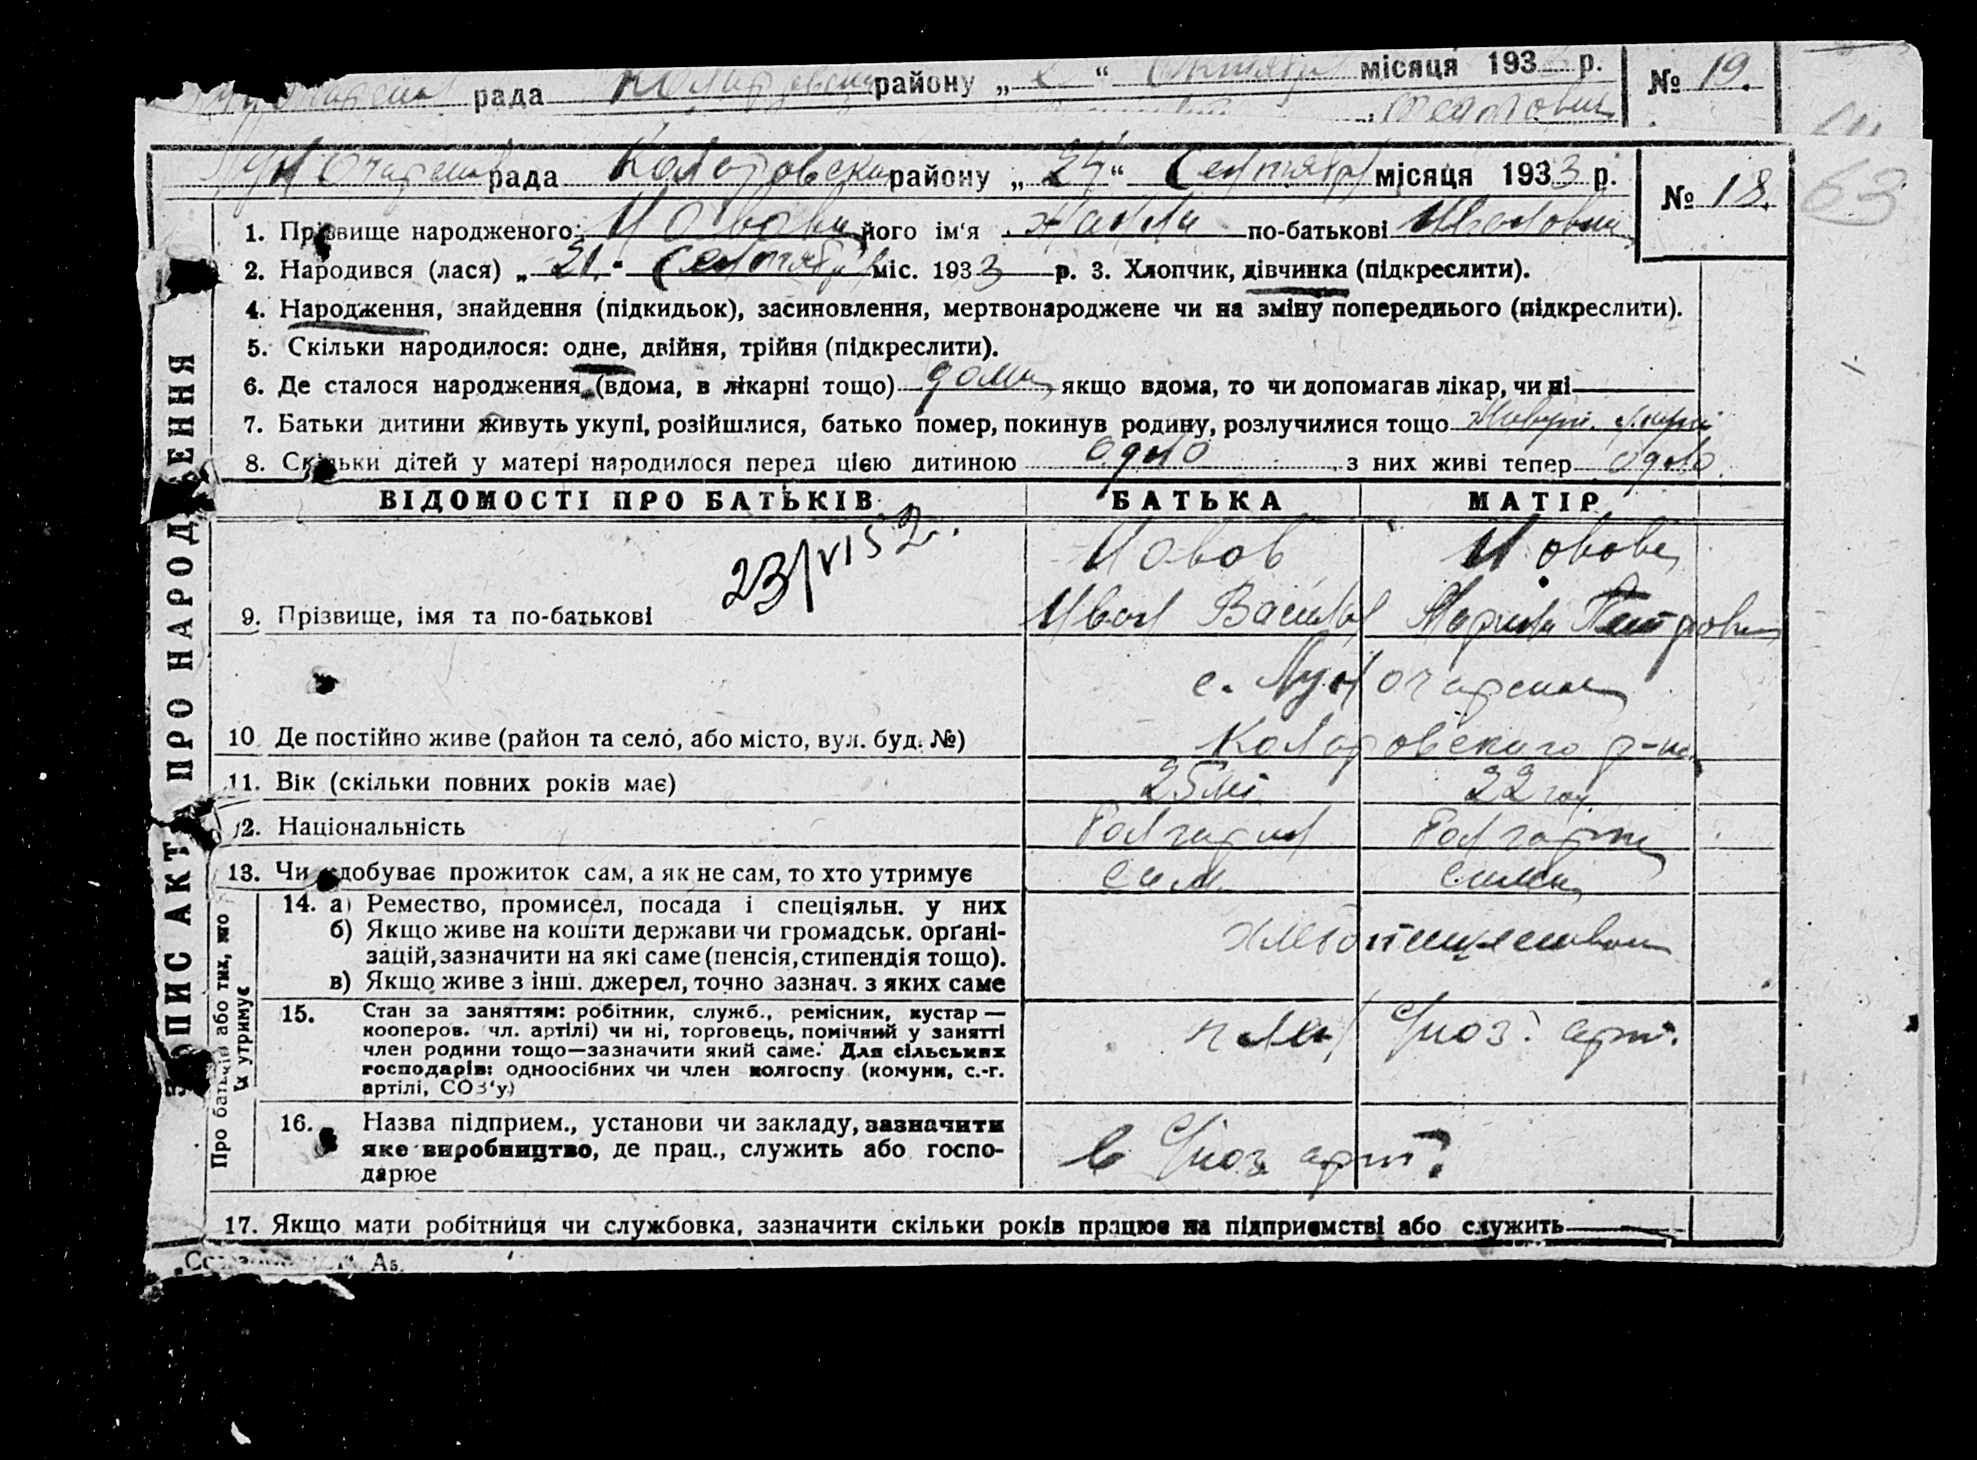 рада району „ “ місяця 193 р. № 19.
рада Коларовски району „ 24 “ Сентября місяця 1933 р. № 18.
63
1. Прізвище народженого його ім'я по-батькові Ивановна
2. Народився (лася) „ 21. “ Сентября міс. 1933 р. 3. Хлопчик, дівчинка (підкреслити).
4. Народження, знайдення (підкидьок), засиновлення, мертвонароджене чи на зміну попереднього (підкреслити).
5. Скільки народилося: одне, двійня, трійня (підкреслити).
6. Де сталося народження (вдома, в лікарні тощо) дома якщо вдома, то чи допомагав лікар, чи ні
7. Батьки дитини живуть укупі, розійшлися, батько помер, покинув родину, розлучилися тощо Живут
8. Скільки дітей у матері народилося перед цією дитиною одно з них живі тепер одно
ЗАПИС АКТА ПРО НАРОДЖЕННЯ
ВІДОМОСТІ ПРО БАТЬКІВ БАТЬКА МАТІР
23/VI 52г.
9. Прізвище, імя та по-батькові
Иван Васильев Мария Петровна
10 Де постійно живе (район та село, або місто, вул. буд. №)
с. Луночарское
Коларовского р-на
11. Вік (скільки повних років має) 25 лет 22 год.
12. Національність Болгарин Болгарка
13. Чи здобуває прожиток сам, а як не сам, то хто утримує сам сама
Про батьків або тих, хто їх утримує
14. а) Ремество, промисел, посада і спеціяльн. у них
б) Якщо живе на кошти держави чи громадськ. орґані-
зацій, зазначити на які саме (пенсія, стипендія тощо).
в) Якщо живе з інш. джерел, точно зазнач. з яких саме
хлебопашеством
15. Стан за заняттям: робітник, служб., ремісник, кустар—
кооперов. чл. артілі) чи ні, торговець, помічний у занятті
член родини тощо—зазначити який саме. Для сільських
господарів: одноосібних чи член колгоспу (комуни, с.-г.
артілі, СОЗ'у)
член с/хоз. арт.
16. Назва підприєм., установи чи закладу, зазначити
яке виробництво, де прац., служить або госпо-
дарює
в с/хоз. арт.
17. Якщо мати робітниця чи службовка, зазначити скільки років працює на підприємстві або служить